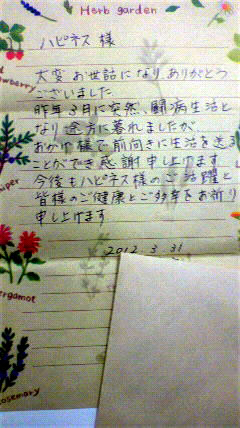 Herb garden
ハピネス 様
大変お世話になりありがとう
ございました
昨年3月に突然、闘病生活と
なり途方に暮れましたが
おかげ様で前向きに生活を送る
ことができ感謝申し上げます
今後もハピネス様のご活躍と
皆様のご健康とご多幸をお祈り
申し上げます
2012. 3. 31
rosemary